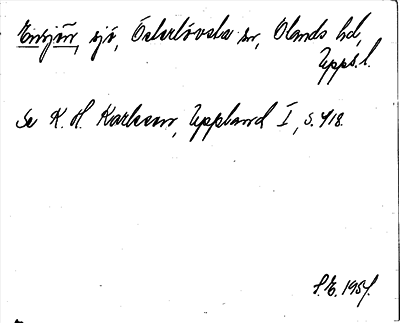 sjö, Österlövsta sn, Olands hd,
Upps.l.
Se K. H. Karlsson, Uppland I, s. 418.
S.E. 1957.